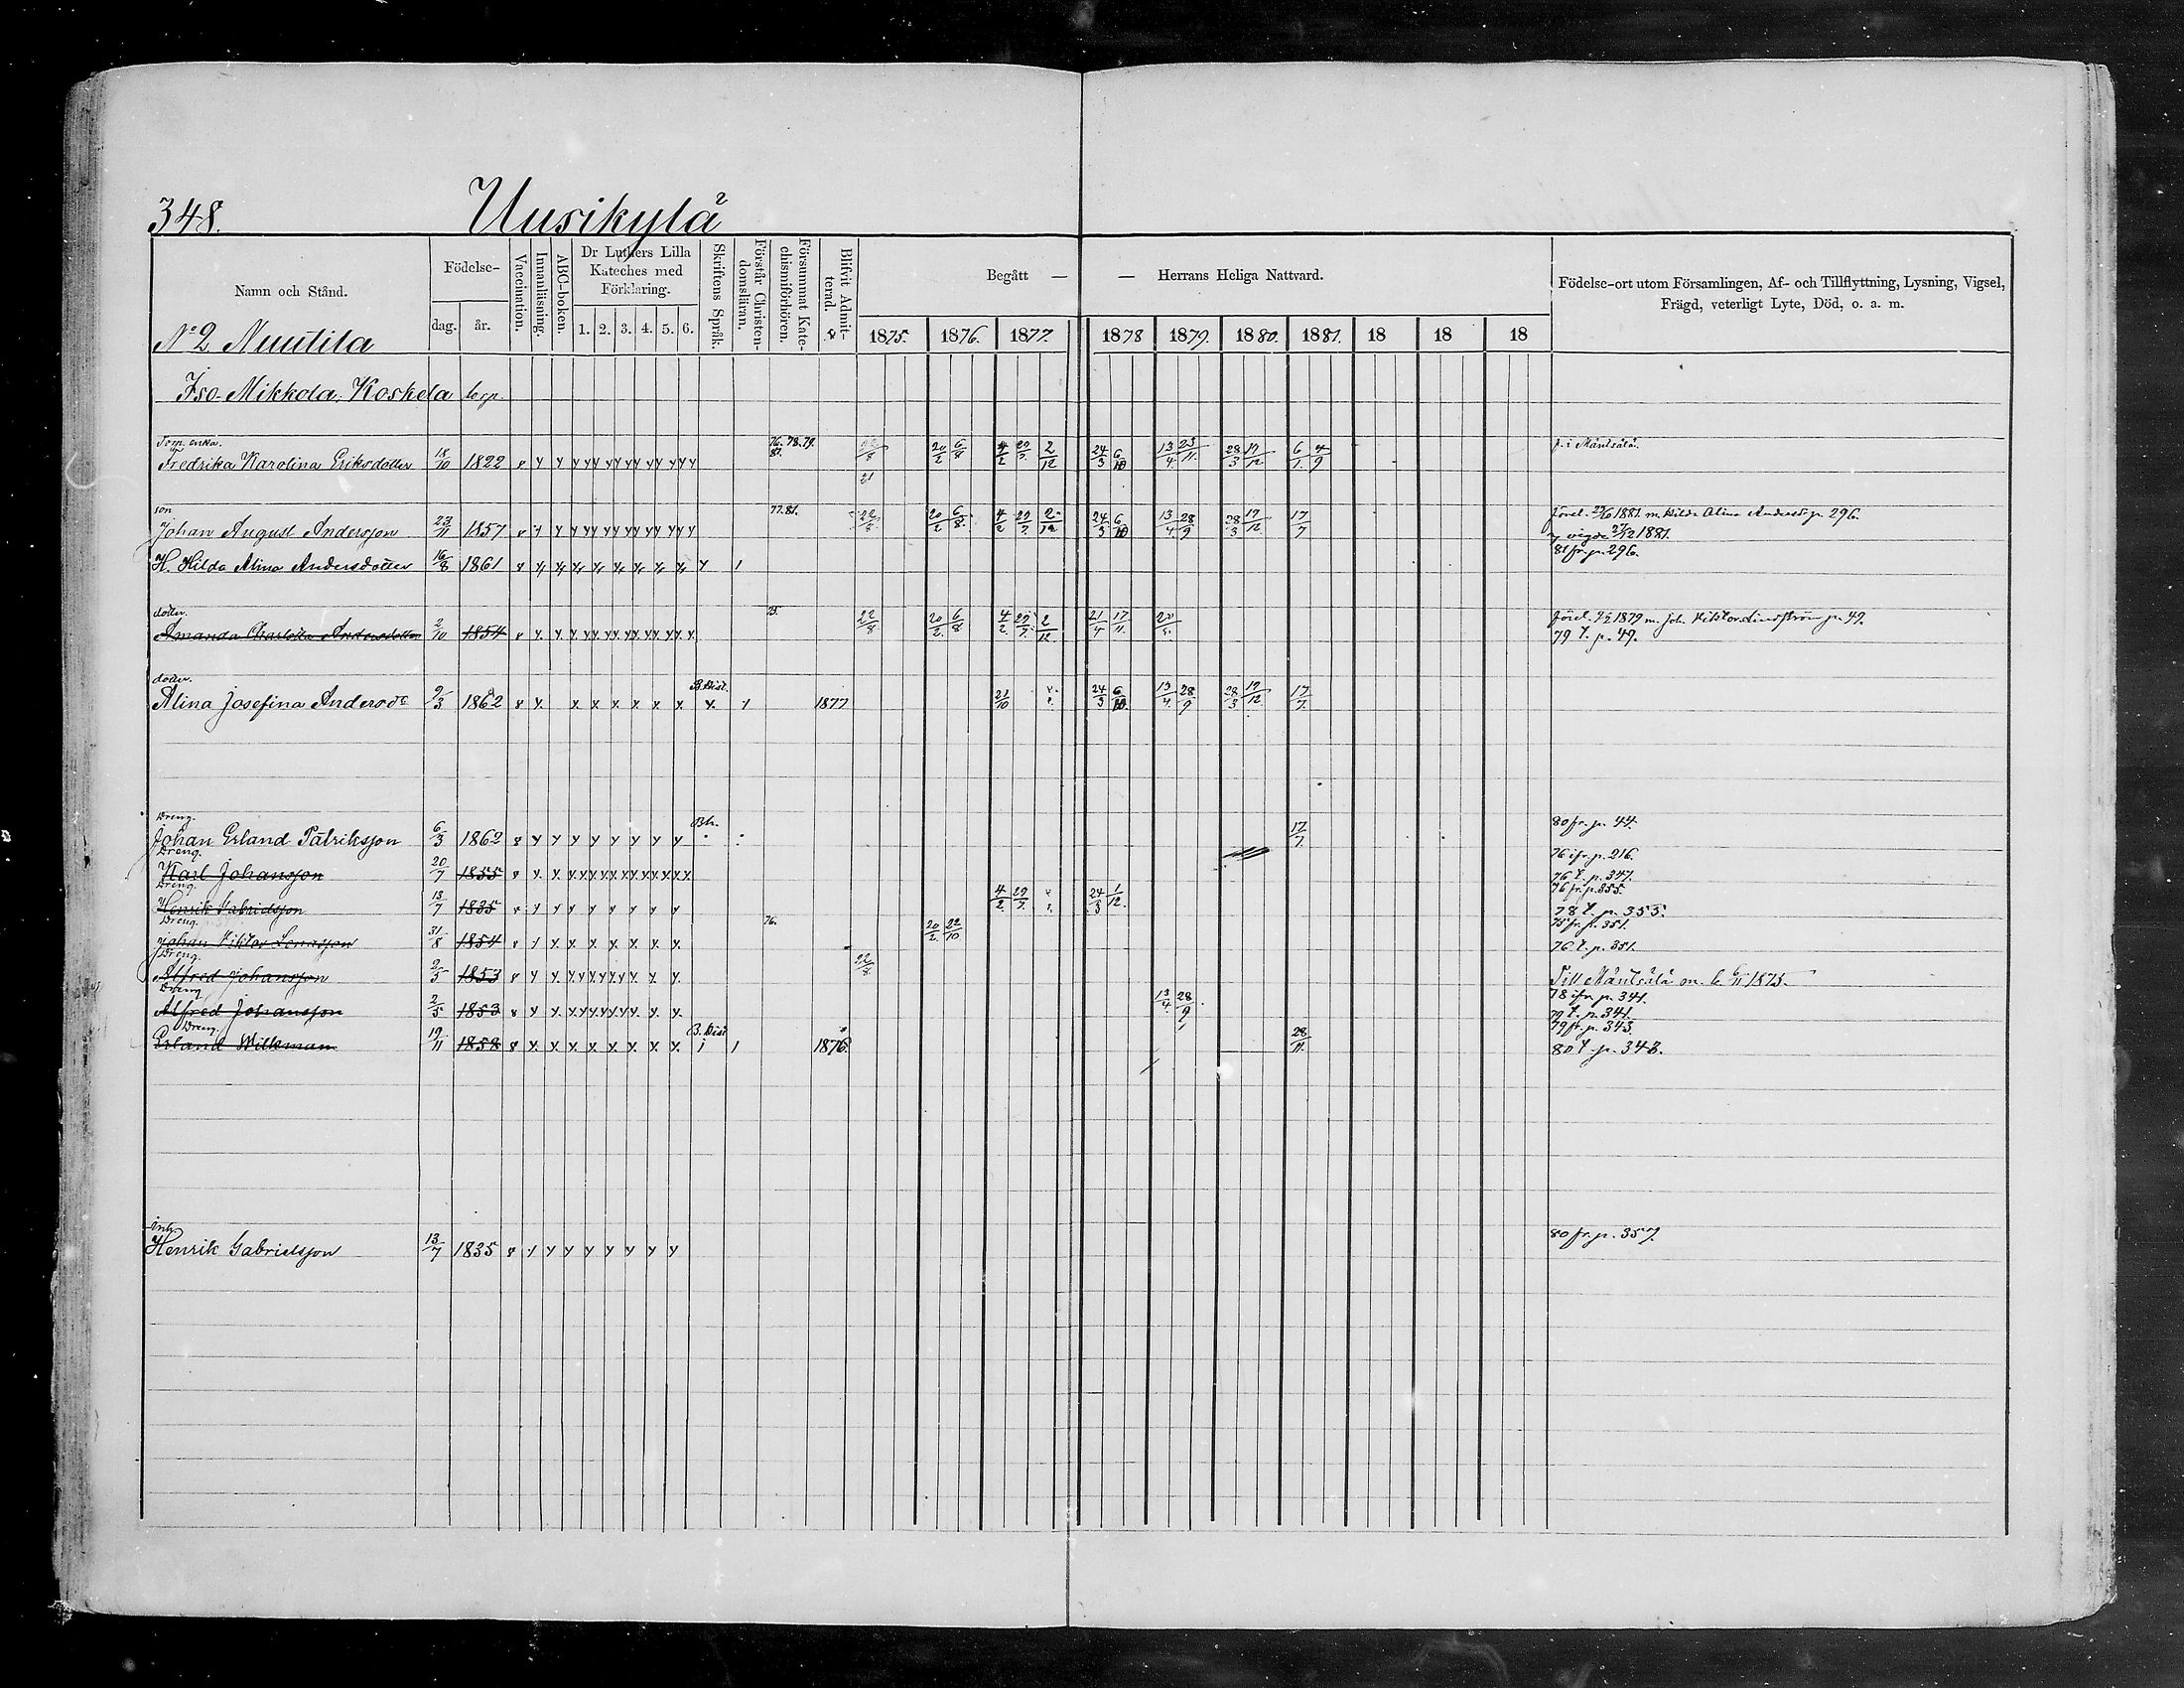 348. Uusikylä
Namn och Stånd.
Födelse-
dag. år.
Vaccination.
Innanläsning.
ABC-boken.
Dr Luthers Lilla
Kateches med
Förklaring.
1. 2. 3. 4. 5. 6.
Skriftens Språk.
Förstår Christen-
domsläran.
Försummat Kate-
chismiförhören.
Blifvit Admit-
terad.
Begått — — Herrans Heliga Nattvard.
1875. 1876. 1877. 1878 1879. 1880. 1881. 18 18 18
Födelse-ort utom Församlingen, Af- och Tillflyttning, Lysning, Vigsel,
Frägd, veterligt Lyte, Död, o. a. m.
No 2. Nuutila
Iso-Mikkola, Koskela torp.
Torp. enka. 76. 78. 79.
Fredrika Karolina Eriksdotter 18/10 1822 81. 22/8 20/2 6/8 4/2 29/7 2/12 24/3 6/10 13/4 23/11 28/3 17/12 6/1 4/9 f. i Mäntsälä.
21
son 77. 81.
Johan August Andersson 23/11 1857 22/8 20/2 6/8 4/2 29/7 2/12 24/3 6/10 13/4 28/9 28/3 17/12 17/7 m. Hilda Alina Andersd. p. 296.
vigde 27/12 1881.
H. Hilda Alina Andersdotter 16/8 1861 81 fr. p. 296.
dotter. 75.
Amanda Charlotta Andersdotter 2/10 1854 22/8 20/2 6/8 4/2 29/7 2/12 21/4 17/11 1879 m. Joh. Viktor Lindström p. 49.
79 t. p. 49.
dotter. B. Hist.
Alina Josefina Andersd. 9/3 1862 1877 21/10 24/3 6/10 13/4 28/9 28/3 17/12 17/7
Dreng.
Johan Erland Patriksson 6/3 1862 17/7 80 fr. p. 44.
Dreng. 76 ifr. p. 216.
Karl Johansson 20/7 1855 76 t. p. 347.
Dreng. 76 fr. p. 355.
Henrik Gabrielsson 13/7 1835 4/2 29/7 24/3 1/12 78 t. p. 353.
Dreng. 76. 75 fr. p. 351.
Johan Viktor 31/8 1854 20/2 22/10 76 t. p. 351.
Dreng.
Alfred Johansson 2/5 1853 22/8 Till Mäntsälä m. b. 6/11 1875.
Dreng 78 ifr. p. 341.
Alfred Johansson 2/5 1853 13/4 28/9 79 t. p. 341.
Dreng. B. Hist 79 fr. p. 343.
Erland Willeman 19/11 1858 1876. 28/11 80 t. p. 343.
inh.
Henrik Gabrielsson 13/7 1835 80 fr. p. 357.